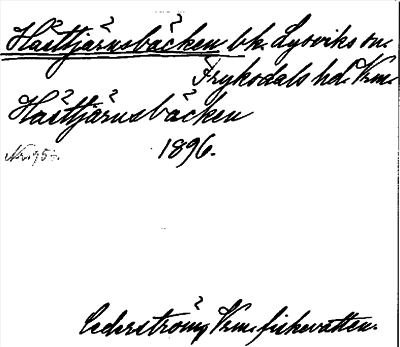 Hästtjärnsbäcken bk. Lysviks sn.
Fryksdals hd. Vrm.
Hästtjärnsbäcken
1896.
Cederström, Vrm. fiskevatten.